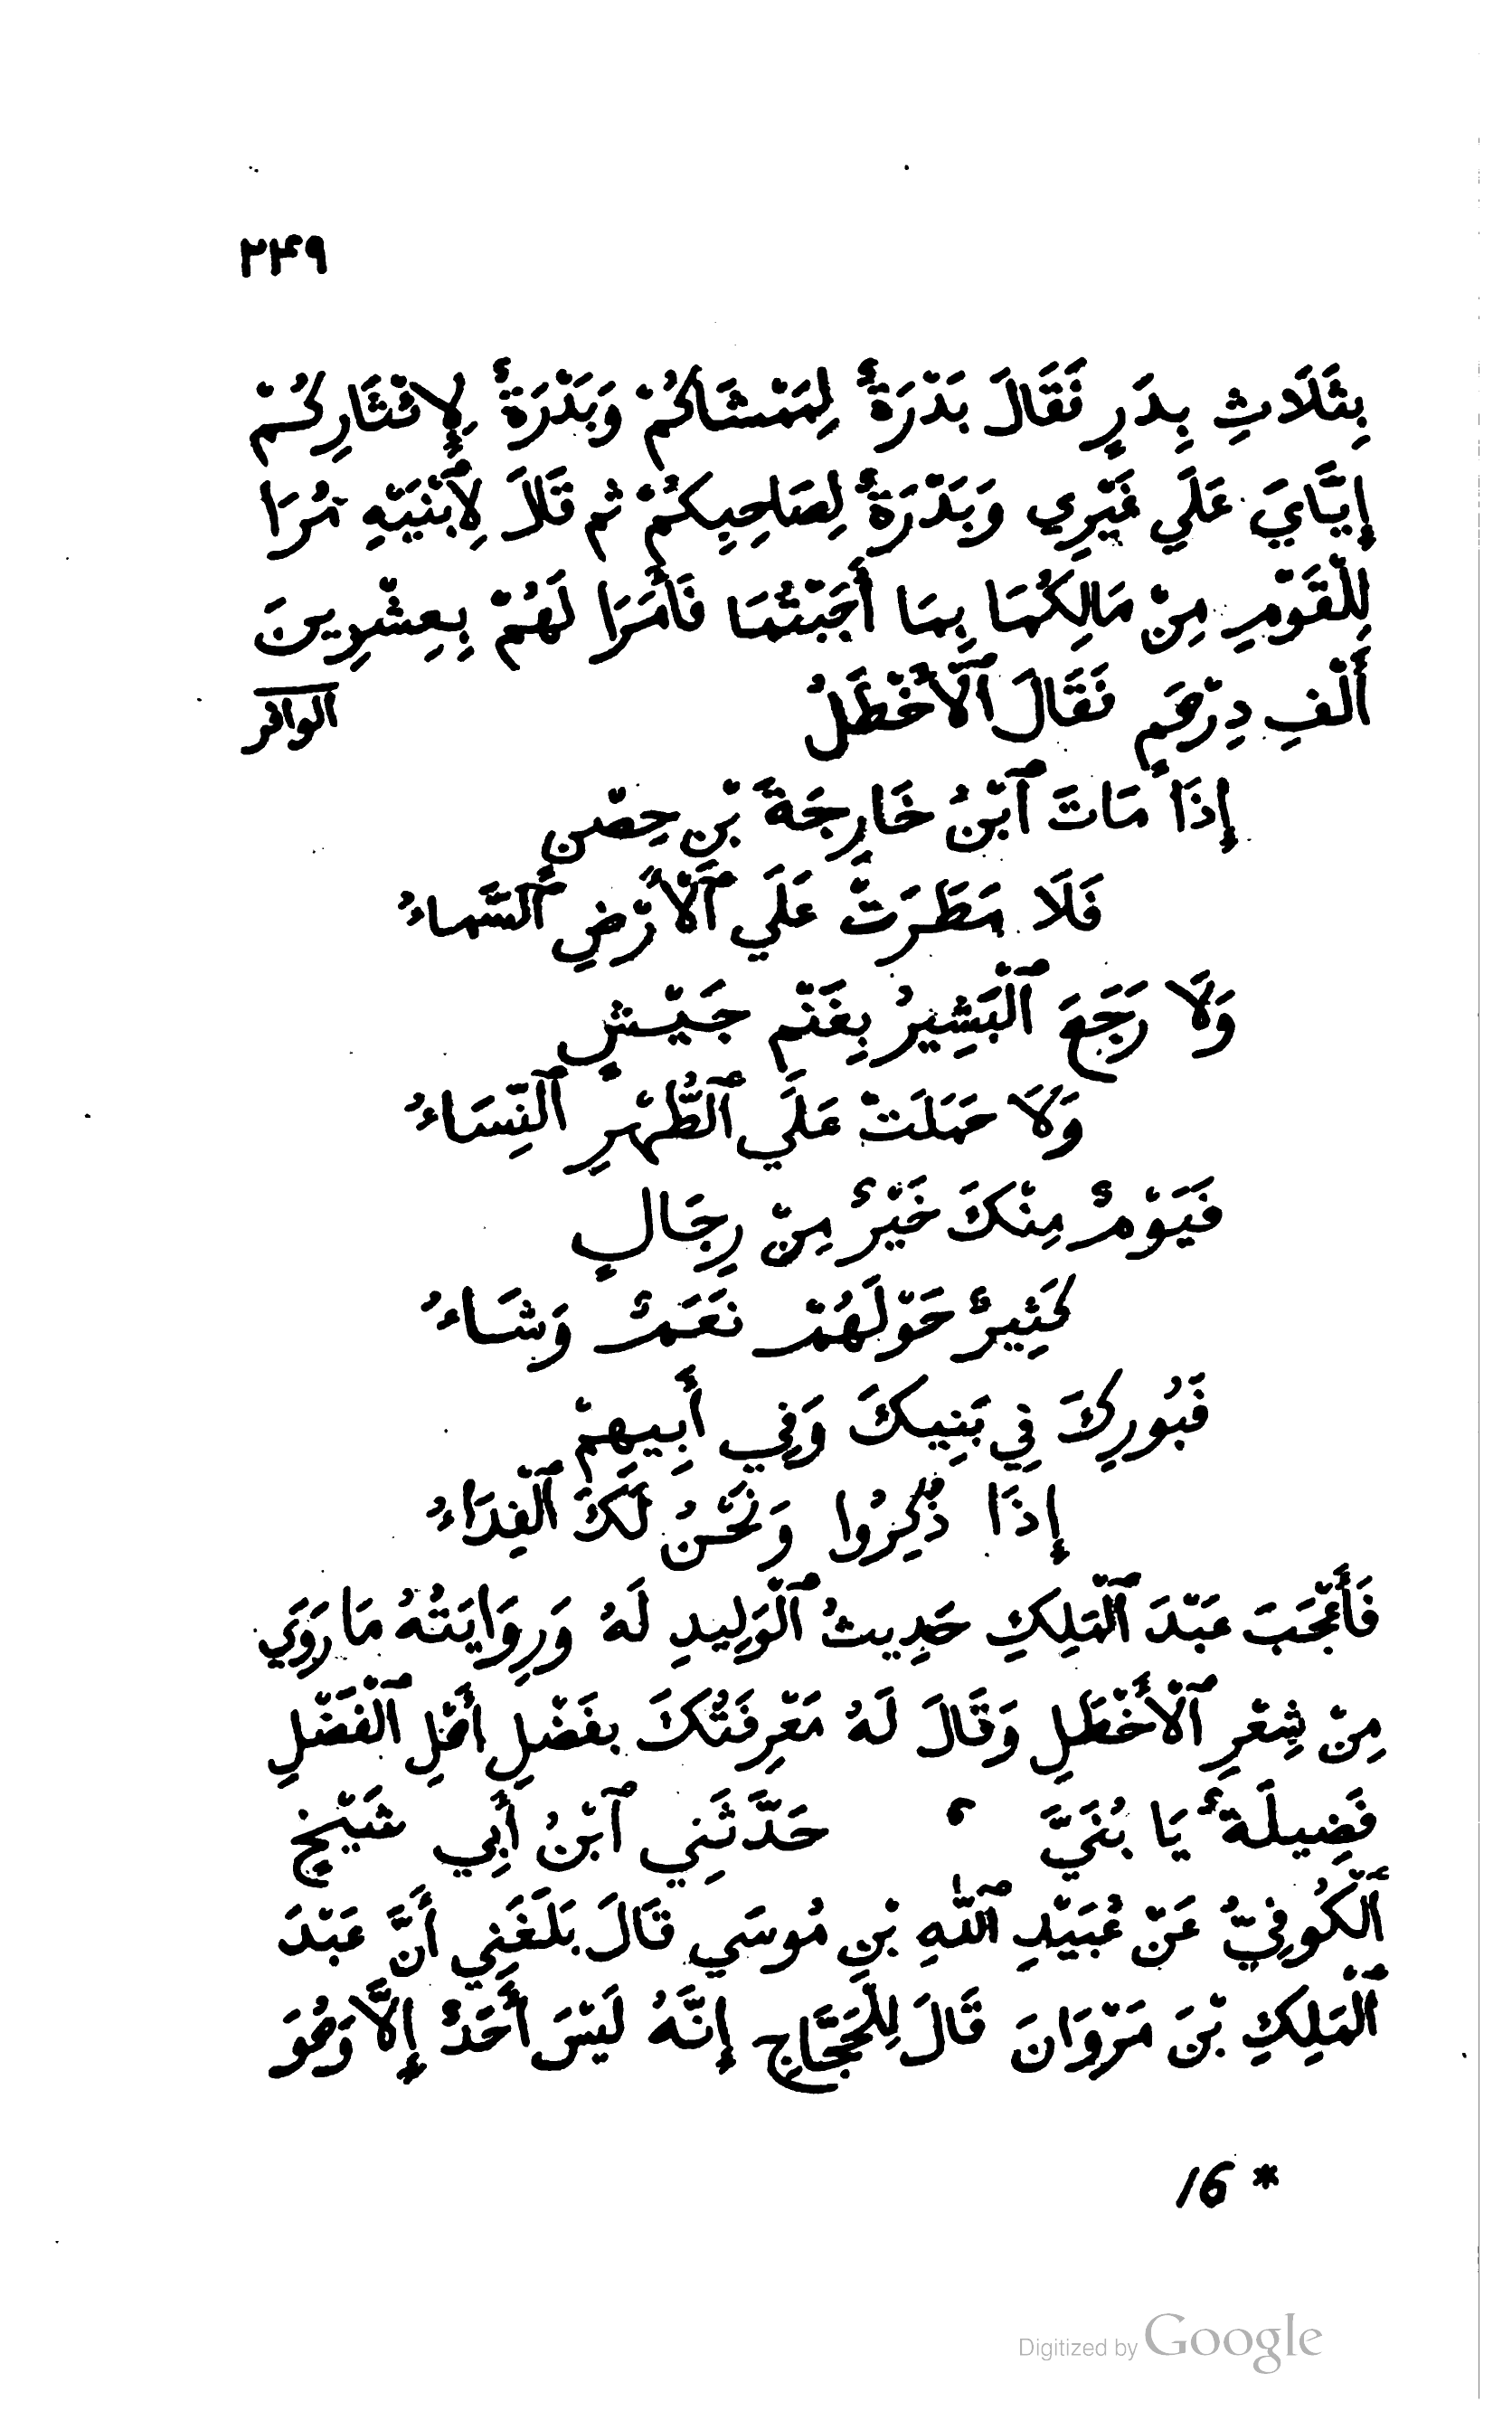 ٢٤٩
بِثَلَاثِ بِدَرٍ فَقَالَ بَدْرَةٌ لِمَمْشَاكُمْ وَبَدْرَةٌ لِإِئْثَارِكُمْ
إِيَّايَ عَلَي غَيْرِي وَبَدْرَةٌ لِصَاحِبِكُمْ ثم قَالَ لِٱبْنَيْهِ مُرَا
لِلْقَوْمِ مِنْ مَالِكُمَا بِمَا أَحْبَبْتُمَا فَأَمَرَا لَهُمْ بِعِشْرِينَ
أَلْفِ دِرْهَمٍ فَقَالَ ٱلْأَخْطَلُ الوافر
إِذَا مَاتَ ٱبْنُ خَارِجَةَ بْنِ حِصْنٍ
فَلَا مَطَرَتْ عَلَي ٱلْأَرْضِ ٱلسَّماءُ
وَلَا رَجَعَ ٱلْبَشِيرُ بِغَنْمِ جَيْشٍ
وَلَا حَمَلَتْ عَلَي ٱلطُّهْرِ ٱلنِّسَاءُ
فَيَوْمٌ مِنْكَ خَيْرٌ مِنْ رِجَالٍ
كَثِيرٌ حَوْلَهُمْ نَعَمٌ وَشَاءُ
فَبُورِكَ فِي بَنِيكَ وَفِي أَبِيهِمْ
إِذَا ذُكِرُوا وَنَحْنُ لَكَ ٱلْفِدَاءُ
فَأَعْجَبَ عَبْدَ ٱلْمَلِكِ حَدِيثُ ٱلْوَلِيدِ لَهُ وَرِوَايَتُهُ مَا رَوَي
مِنْ شِعْرِ ٱلْأَخْطَلِ وَقَالَ لَهُ مَعْرِفَتُكَ بِفَضْلِ أَهْلِ ٱلْفَضْلِ
فَضِيلَةٌ يَا بُنَيَّ ۹ حَدَّثَنِي ٱبْنُ أَبِي شَيْخٍ
ٱلْكُوفِيُّ عَنْ عُبَيْدِ ٱللّٰهِ بْنِ مُوسَي قَالَ بَلَغَنِي أَنَّ عَبْدَ
ٱلْمَلِكِ بْنَ مَرْوَانَ قَالَ لِلْحَجَّاجِ إِنَّهُ لَيْسَ أَحَدٌ إِلَّا وَهُوَ
16 *
Digitized by Google